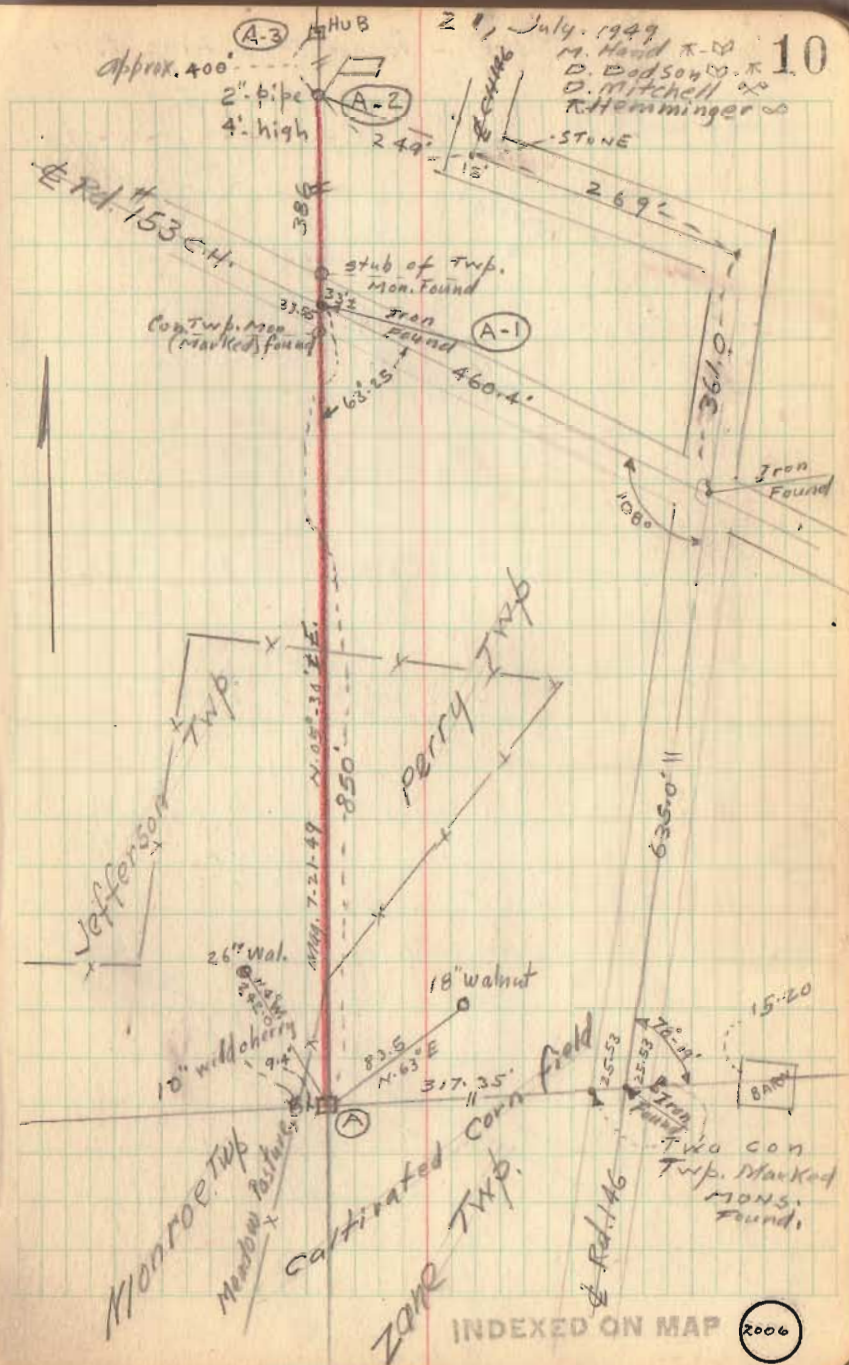 A-3
HUB
2 , July. 1949
10
M. Hand
D. Dodson
D. Mitchell
R. Hemminger
approx. 400'
2" pipe
4' high
A-2
249'
C.H. 146
STONE
18'
269'
386
℄ Rd. # 153 C.H.
stub of Twp.
Mon. Found
33'±
33.55
Con. Twp. Mon
(Marked) found
Iron
Found
A-1
63°25
460.4'
361.0
108°
Iron
Found
Jefferson Twp.
Perry Twp
850'
635.0'
Mag. 7-21-49
26" Wal.
10" wild cherry
18" walnut
83.5
N. 63° E
317.35'
A
25.53
25.53
Iron
Found
15-20
BARN
Two con
Twp. Marked
MONS.
Found.
Monroe Twp
Meadow Pasture
Cultivated Corn field
Zane Twp.
℄ Rd. 146
INDEXED ON MAP
2006